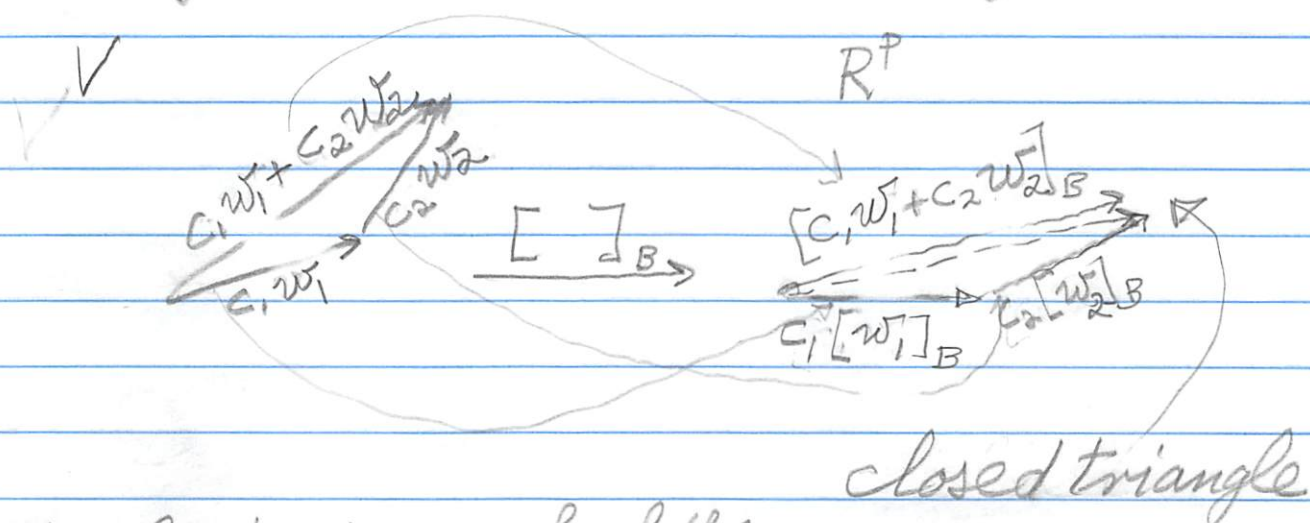 V
R^P
c₁w₁ + c₂w₂
c₂w₂
c₁w₁
[ ]_B
[c₁w₁ + c₂w₂]_B
c₁[w₁]_B
c₂[w₂]_B
closed triangle